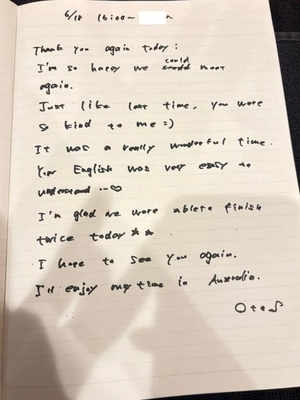 6/18 16:00~
Thank you again today :
I'm so happy we could meet
again.
Just like last time, you were
so kind to me =)
It was a really wonderful time.
Your English was very easy to
understand ...♡
I'm glad we were able to finish
twice today ☆☆
I hope to see you again.
I'll enjoy my time in Australia.